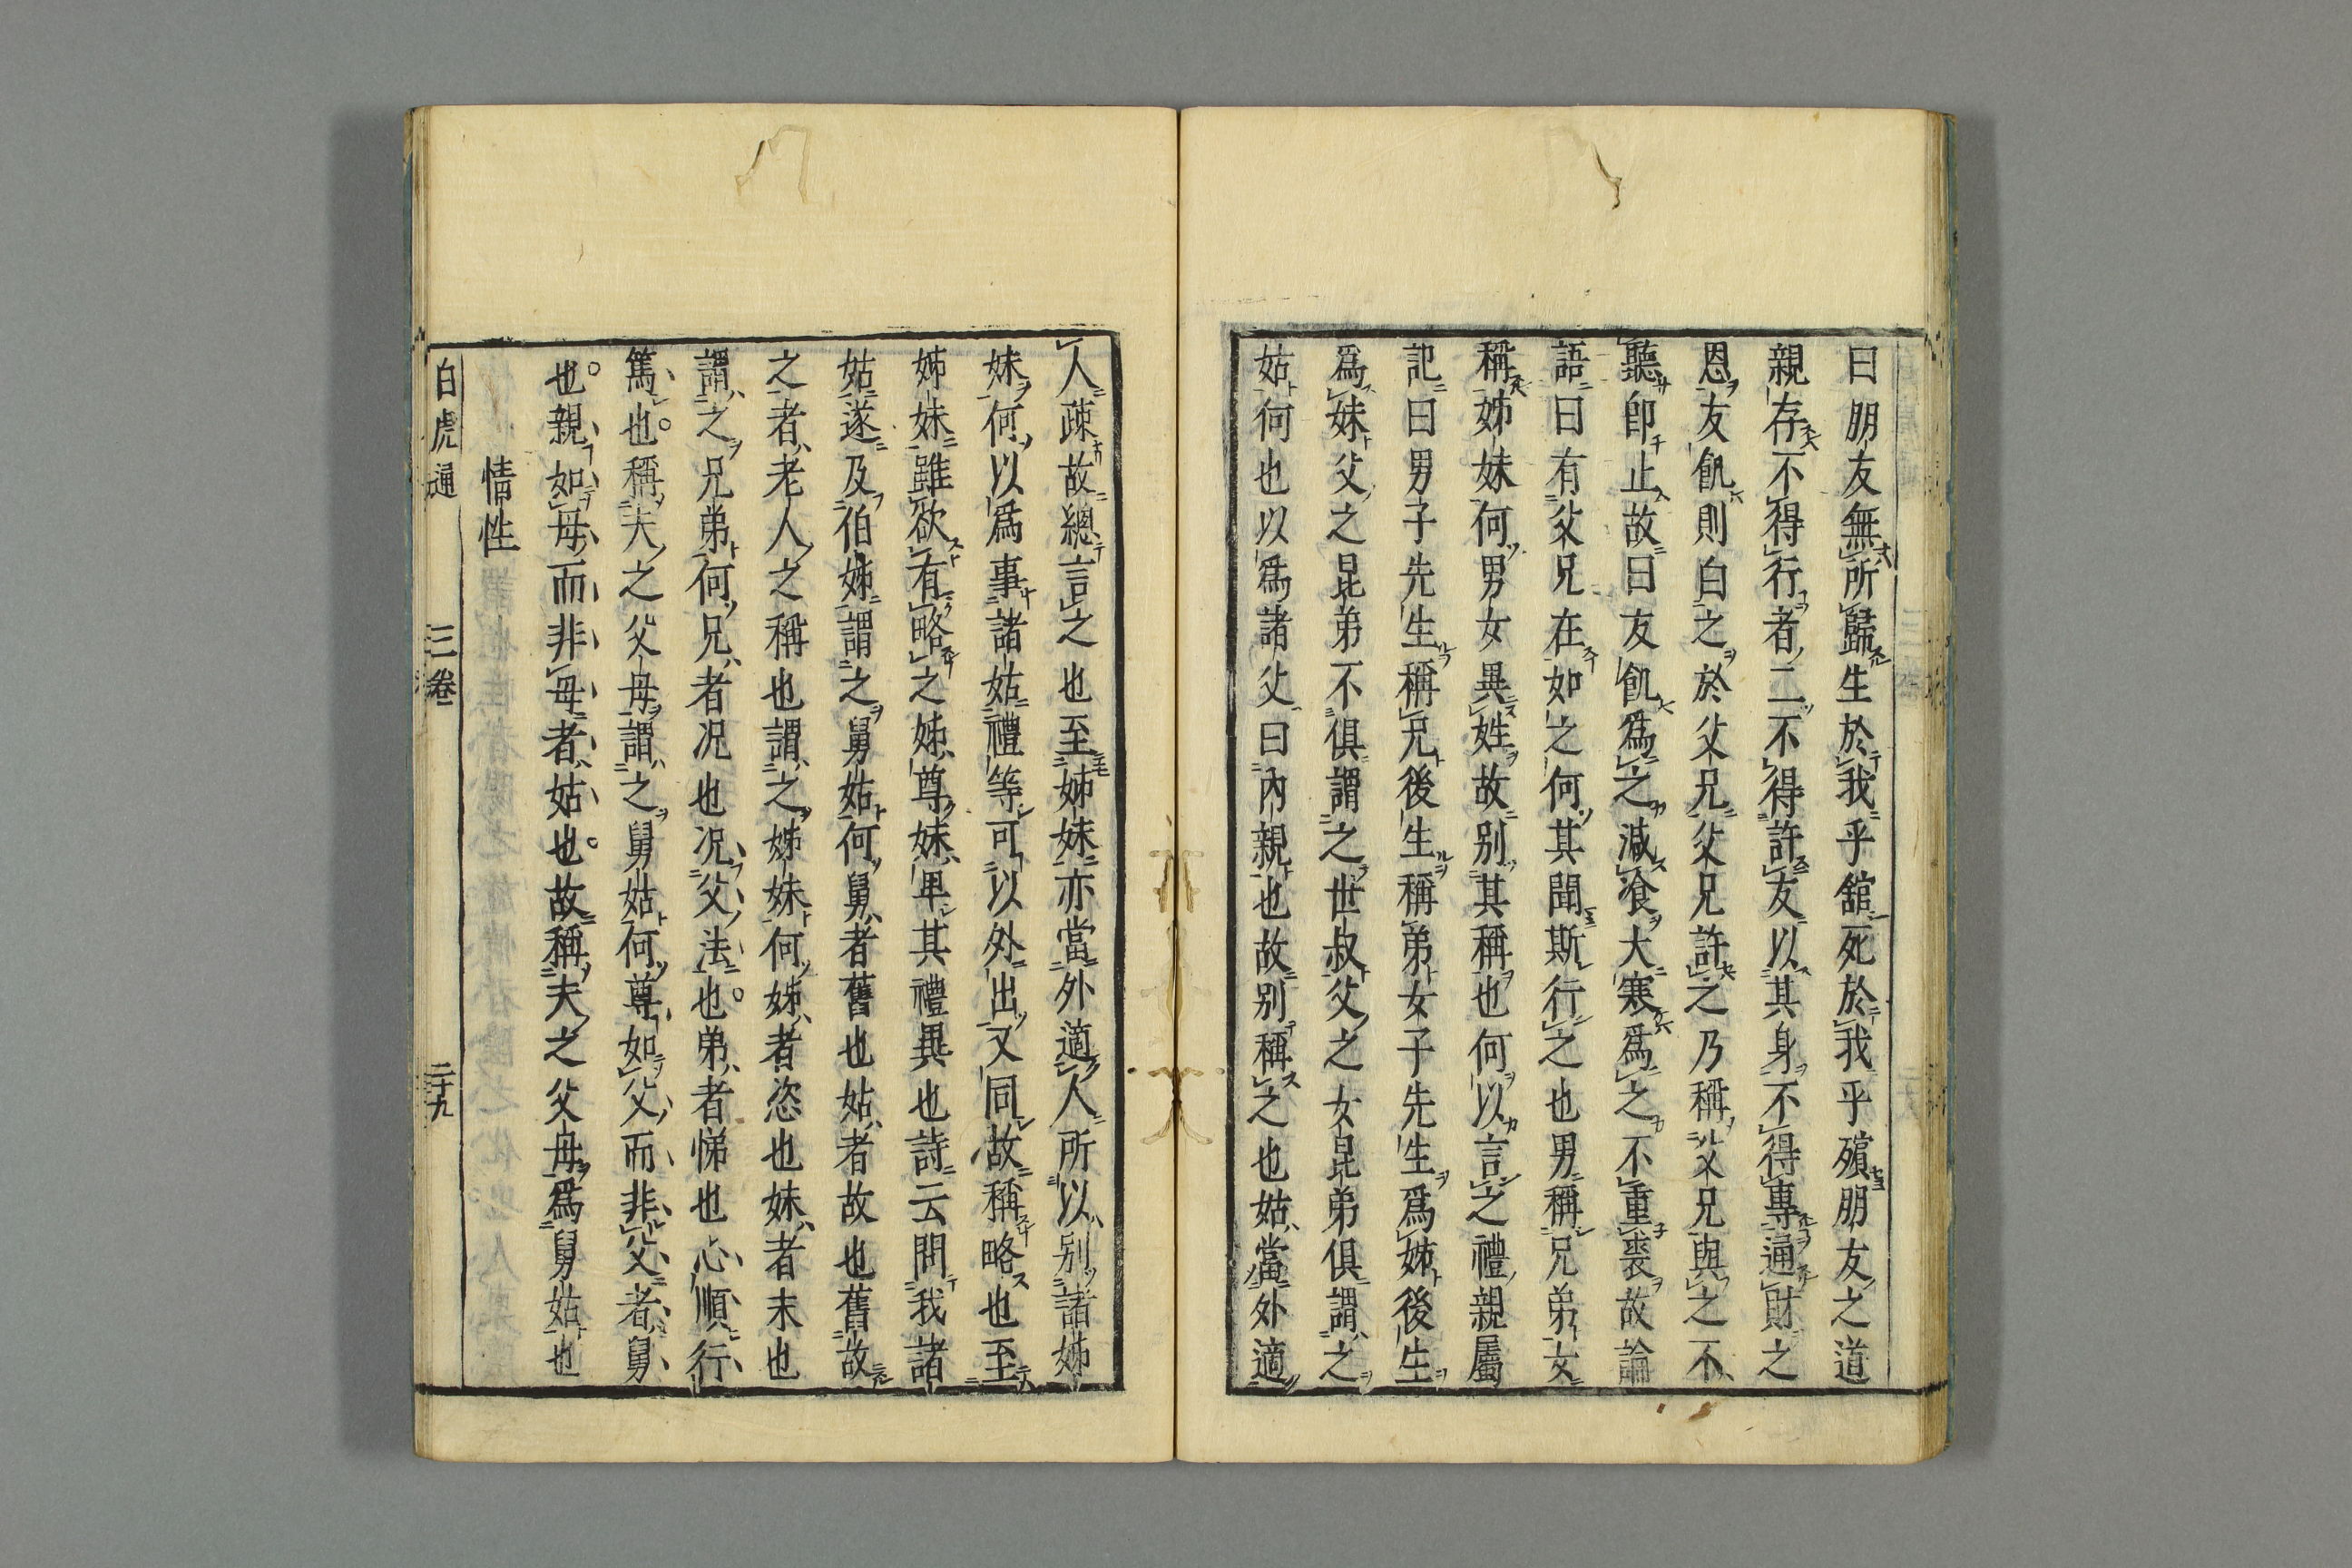 曰朋友無所歸生於我乎舘死於我乎殯朋友之道
親存不得行者二不得許友以其身不得專通財之
恩友飢則白之於父兄父兄許之乃稱父兄與之不
聽即止故曰友飢爲之減飡大寒爲之不重裘故論
語曰有父兄在如之何其聞斯行之也男稱兄弟女
稱姊妹何男女異姓故别其稱也何以言之禮親屬
記曰男子先生稱兄後生稱弟女子先生爲姊後生
爲妹父之昆弟不俱謂之世叔父之女昆弟俱謂之
姑何也以爲諸父曰內親也故别稱之也姑當外適
人疎故總言之也至姊妹亦當外適人所以别諸姊
妹何以爲事諸姑禮等可以外出又同故稱略也至
姊妹雖欲有略之姊尊妹卑其禮異也詩云問我諸
姑遂及伯姊謂之舅姑何舅者舊也姑者故也舊故
之者老人之稱也謂之姊妹何姊者恣也妹者末也
謂之兄弟何兄者况也况父法也弟者悌也心順行
篤也稱夫之父母謂之舅姑何尊如父而非父者舅
也親如母而非母者姑也故稱夫之父母爲舅姑也
情性
白虎通 三卷 二十九